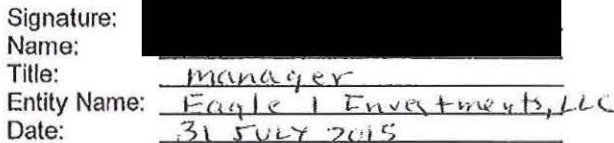 Signature:
Name:
Title: manager
Entity Name: Eagle 1 Investments, LLC
Date: 31 JULY 2015